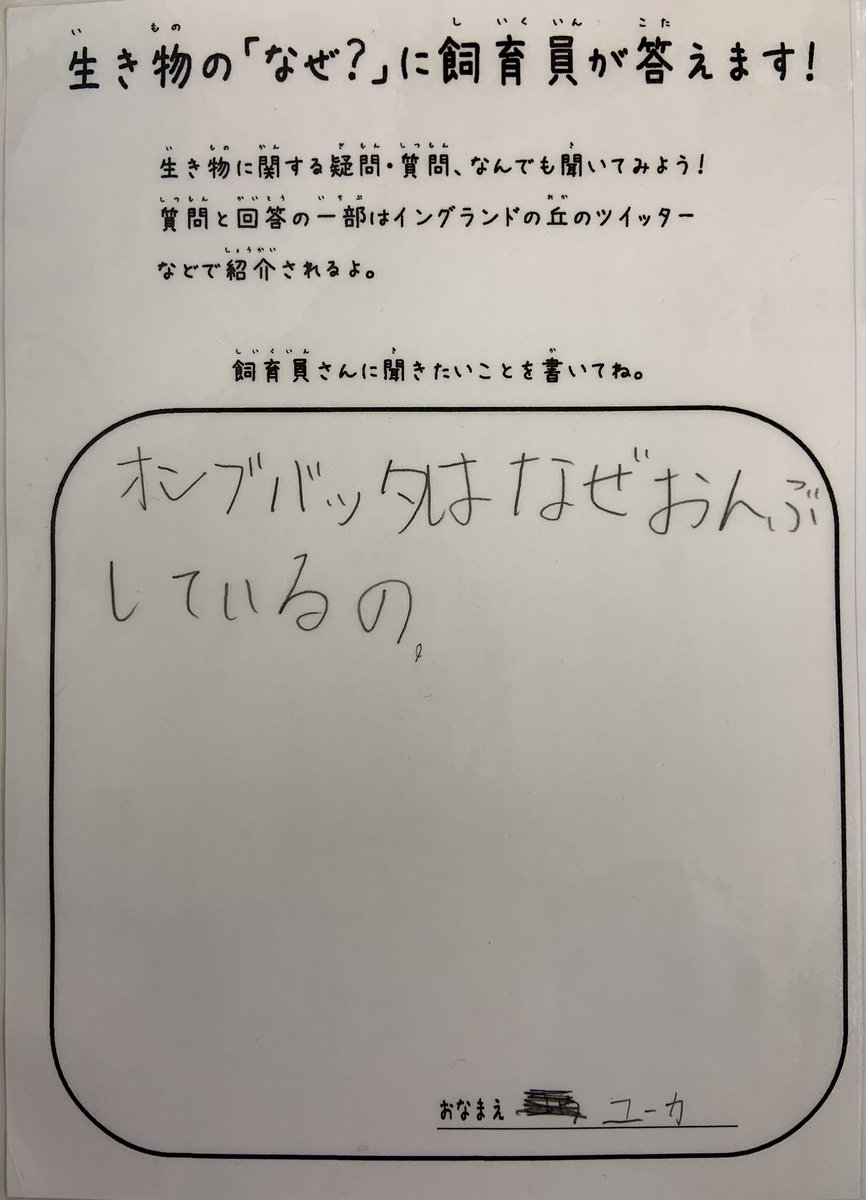 生き物の「なぜ?」に飼育員が答えます!
生き物に関する疑問・質問、なんでも聞いてみよう!
質問と回答の一部はイングランドの丘のツイッター
などで紹介されるよ。
飼育員さんに聞きたいことを書いてね。
オンブバッタはなぜおんぶ
しているの。
おなまえ ユーカ